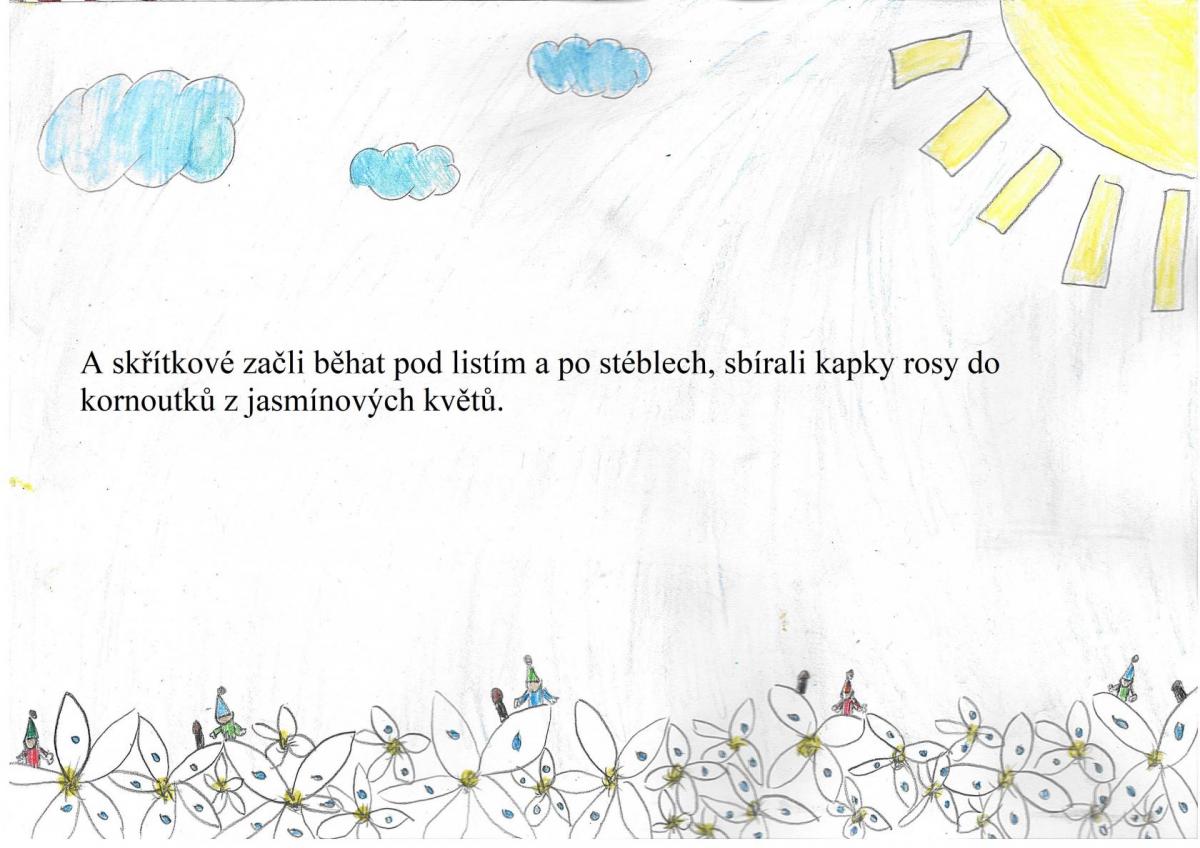 A skřítkové začli běhat pod listím a po stéblech, sbírali kapky rosy do
kornoutků z jasmínových květů.